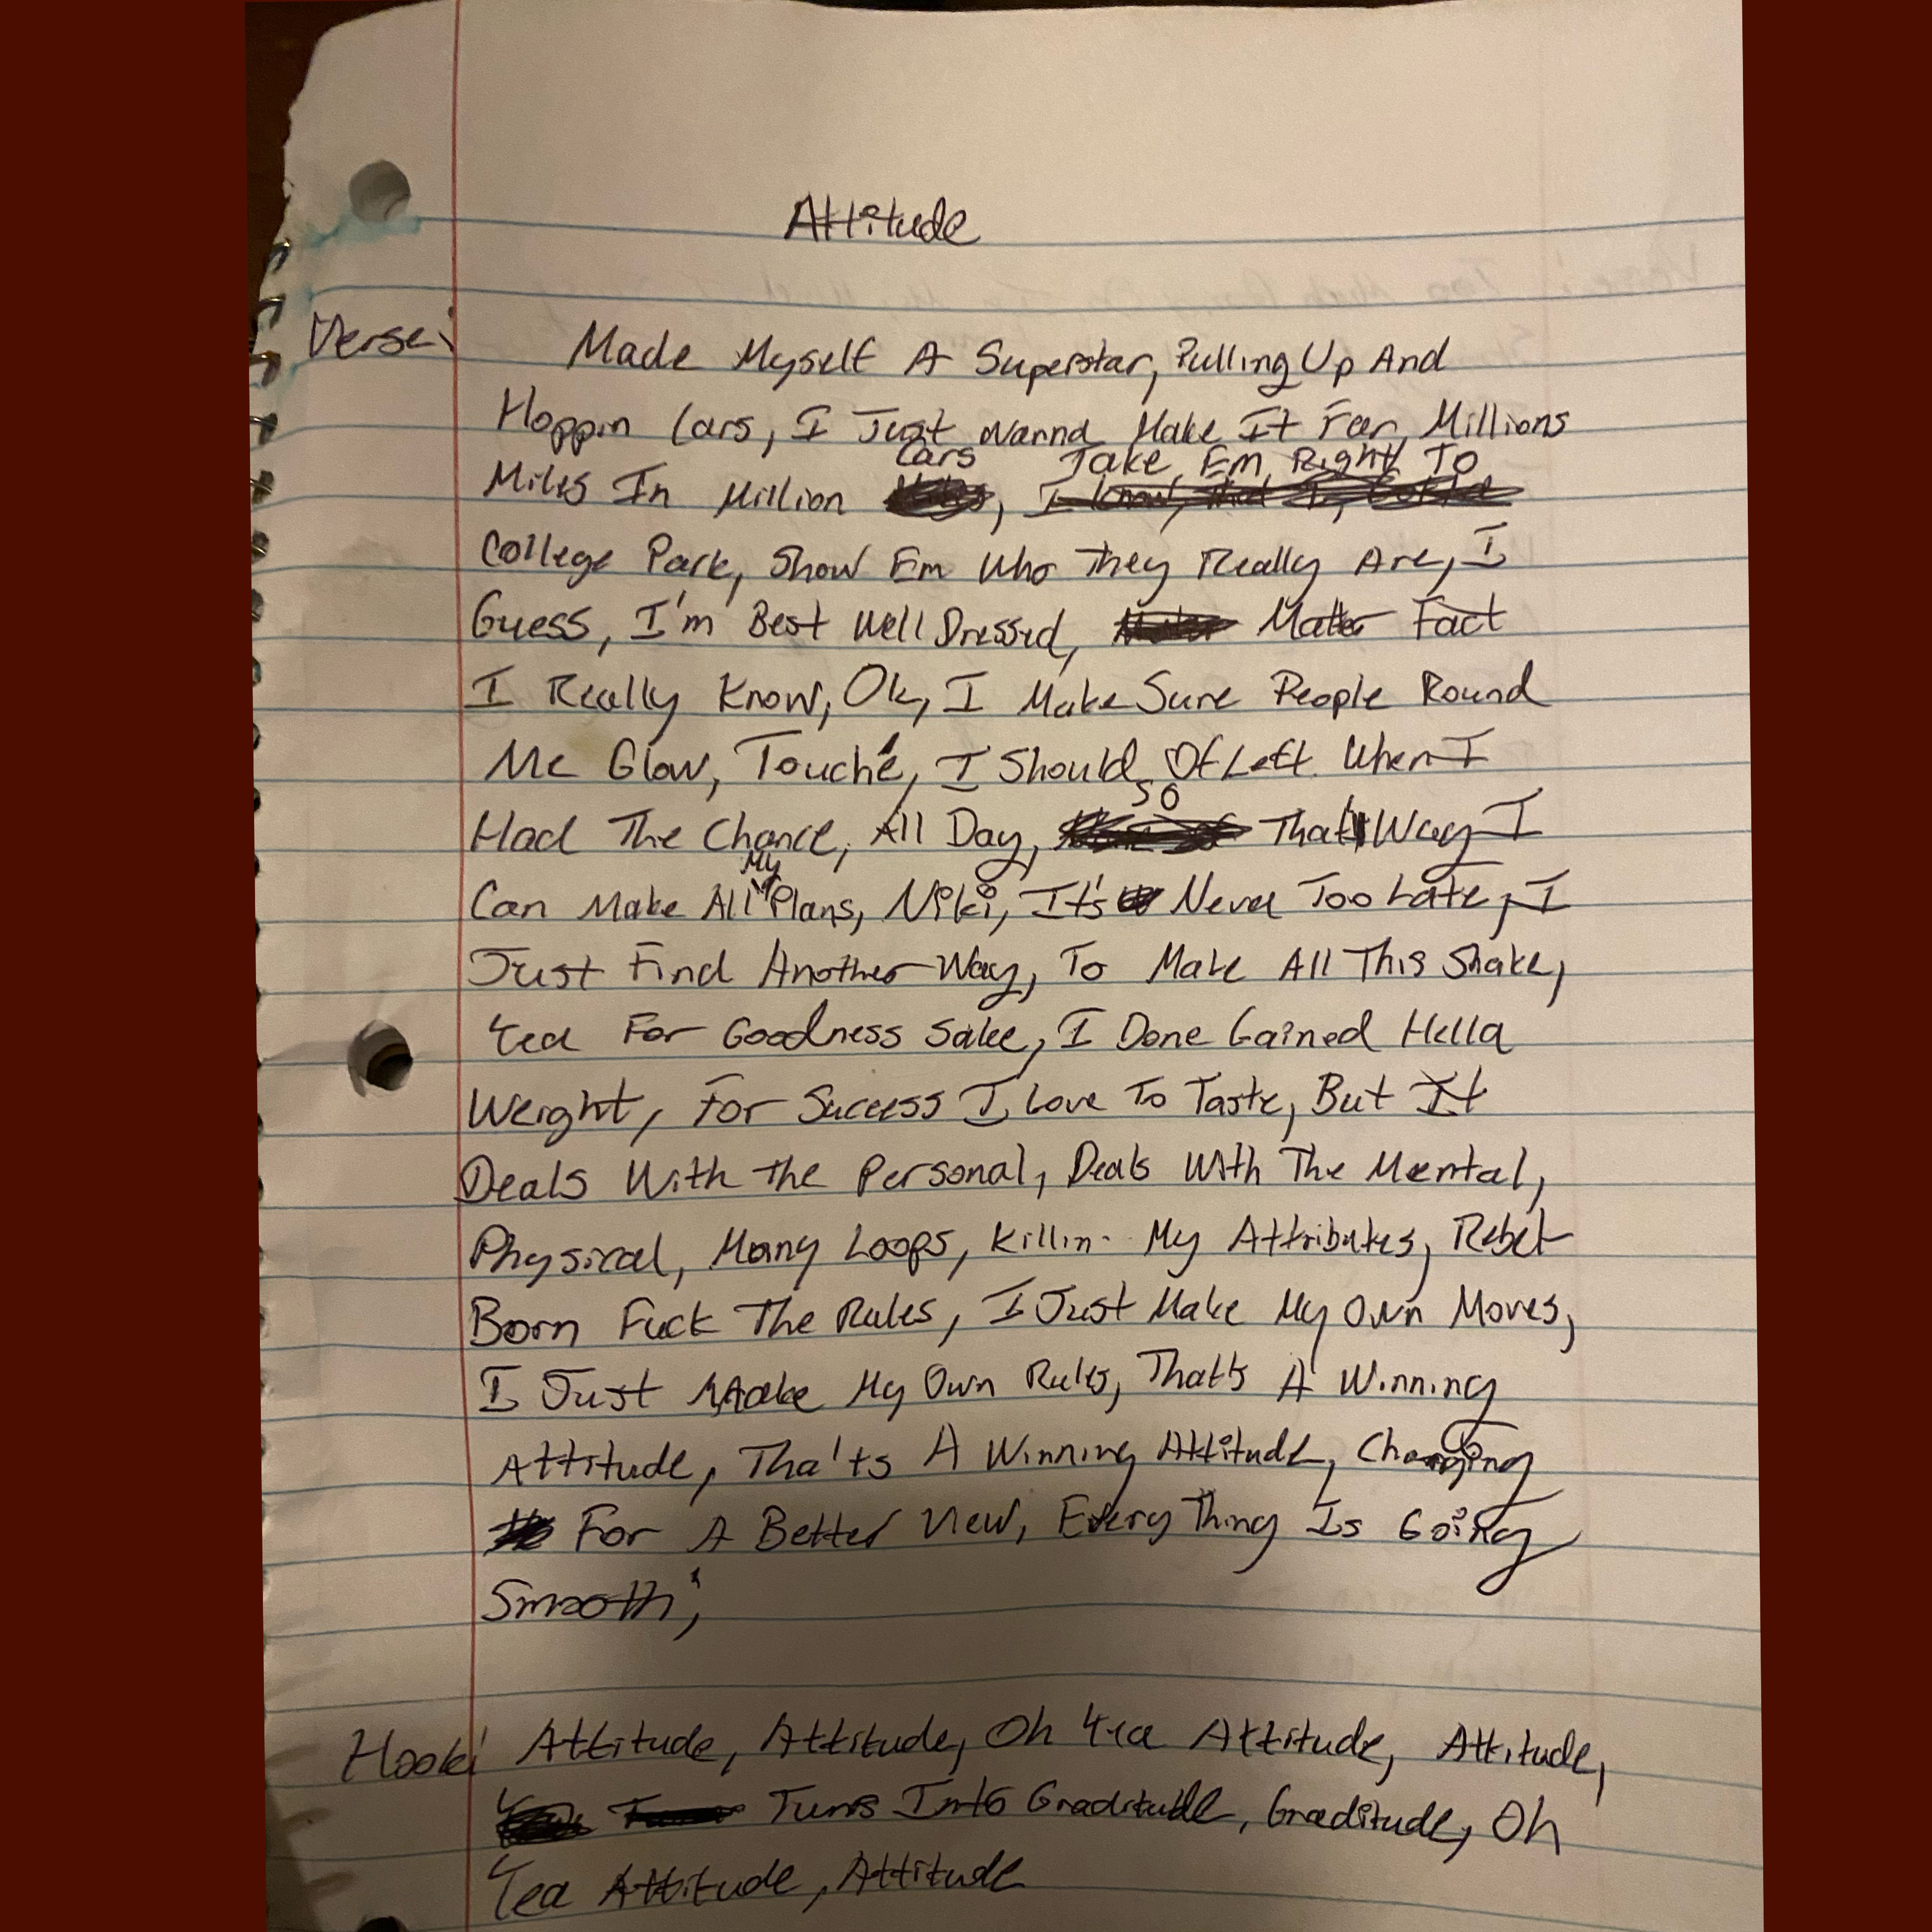 Attitude
Verse: Made Myself A Superstar, Pulling Up And
Hoppin Cars, I Just Wanna Make It Far, Millions
Cars Take Em Right To
Miles In Million
College Park, Show Em Who They Really Are, I
Guess, I'm Best Well Dressed, Matter Fact
I Really Know, Ok, I Make Sure People Round
Me Glow, Touché, I Should Of Left When I
So
Had The Chance, All Day, That Way I
My
Can Make All Plans, Niki, It's Never Too Late, I
Just Find Another Way, To Make All This Shake,
Yea For Goodness Sake, I Done Gained Hella
Weight, For Success I Love To Taste, But It
Deals With The Personal, Deals With The Mental,
Physical, Many Loops, Killin My Attributes, Rebel
Born Fuck The Rules, I Just Make My Own Moves,
I Just Make My Own Rules, That's A Winning
Attitude, Tha'ts A Winning Attitude, Changing
For A Better View, Every Thing Is Going
Smooth;
Hook: Attitude, Attitude, Oh Yea Attitude, Attitude,
Turns Into Graditude, Graditude, Oh
Yea Attitude, Attitude